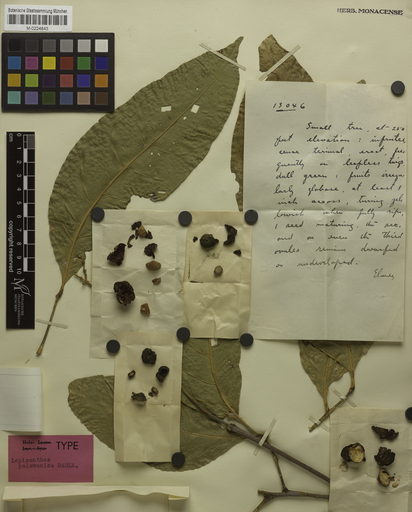 Botanische Staatssammlung München
M-0224843
HERB. MONACENSE
copyright reserved
13046
Small tree, at 250
feet elevation; inflores
cence terminal erect fre
quently on leafless twigs
dull green; fruits irregu
larly globose, at least 1
inch across, turning yel
lowish when fully ripe,
1 seed maturing, the sec
ond or even the third
ovules remain dwarfed
or undeveloped.
Elmer
TYPE
Lepisanthes
palawanica Radlk.